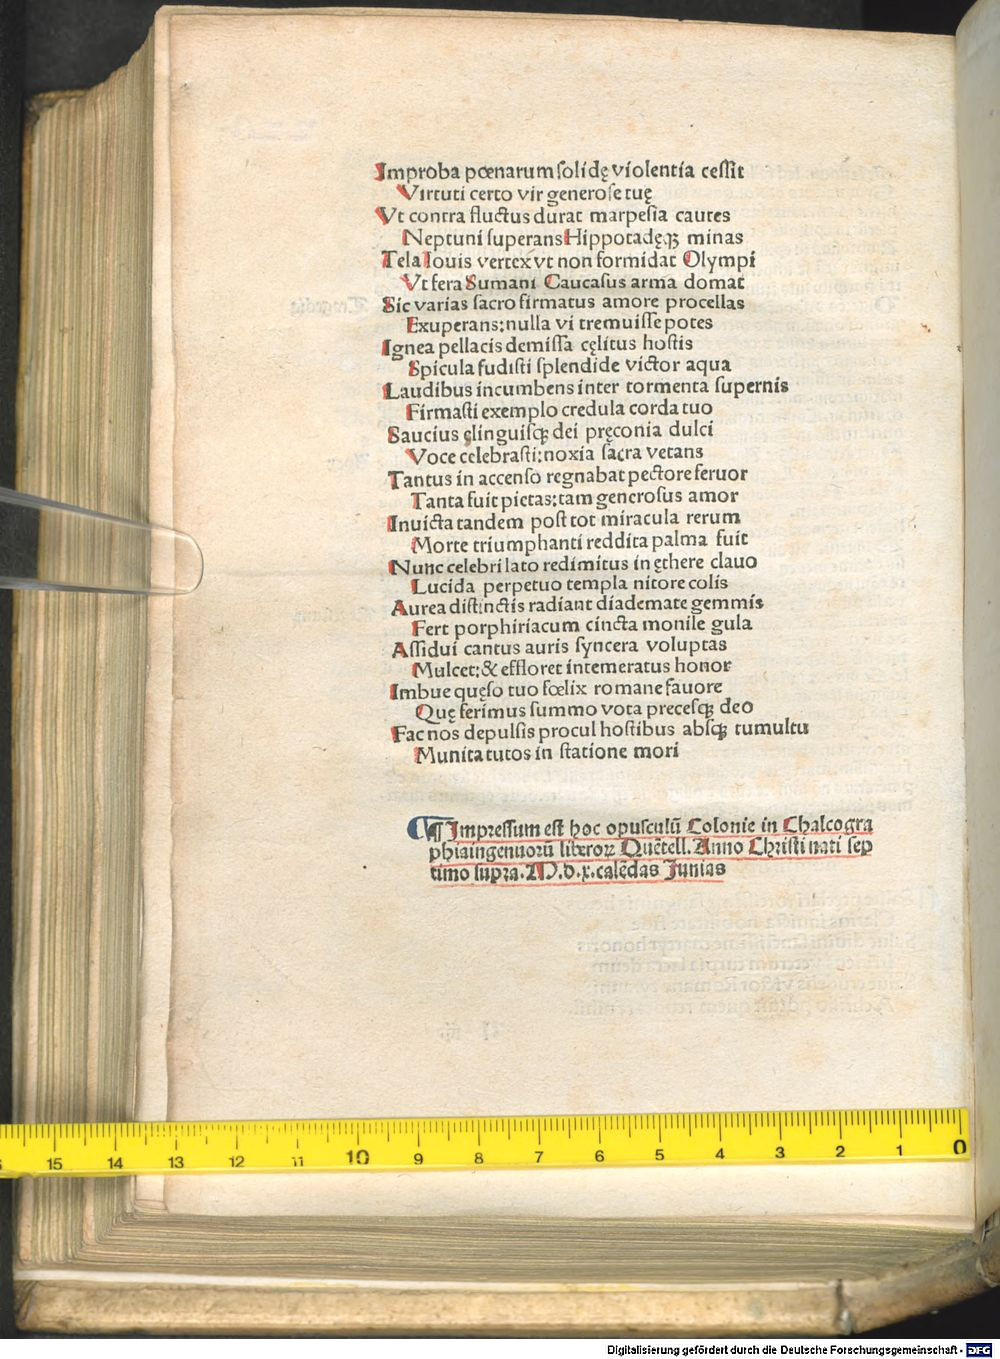 Improba pœnarum solidę violentia cessit
Virtuti certo vir generose tuę
Vt contra fluctus durat marpesia cautes
Neptuni superans Hippotadęqꝫ minas
Tela Iouis vertex vt non formidat Olympi
Vt fera Sumani Caucasus arma domat
Sic varias sacro firmatus amore procellas
Exuperans: nulla vi tremuisse potes
Ignea pellacis demissa cęlitus hostis
Spicula fudisti splendide victor aqua
Laudibus incumbens inter tormenta supernis
Firmasti exemplo credula corda tuo
Saucius elinguisqꝫ dei pręconia dulci
Voce celebrasti: noxia sacra vetans
Tantus in accenso regnabat pectore feruor
Tanta fuit pietas: tam generosus amor
Inuicta tandem post tot miracula rerum
Morte triumphanti reddita palma fuit
Nunc celebri lato redimitus in ęthere clauo
Lucida perpetuo templa nitore colis
Aurea distinctis radiant diademate gemmis
Fert porphiriacum cincta monile gula
Assidui cantus auris syncera voluptas
Mulcet: & effloret intemeratus honor
Imbue quęso tuo fœlix romane fauore
Quę ferimus summo vota precesqꝫ deo
Fac nos depulsis procul hostibus absqꝫ tumultu
Munita tutos in statione mori
¶ Impressum est hoc opusculū Colonie in Chalcogra
phia ingenuorū liberoꝝ Quētell. Anno Christi nati sep
timo supra. M.d.x. calēdas Junias
15 14 13 12 11 10 9 8 7 6 5 4 3 2 1 0
Digitalisierung gefördert durch die Deutsche Forschungsgemeinschaft - DFG